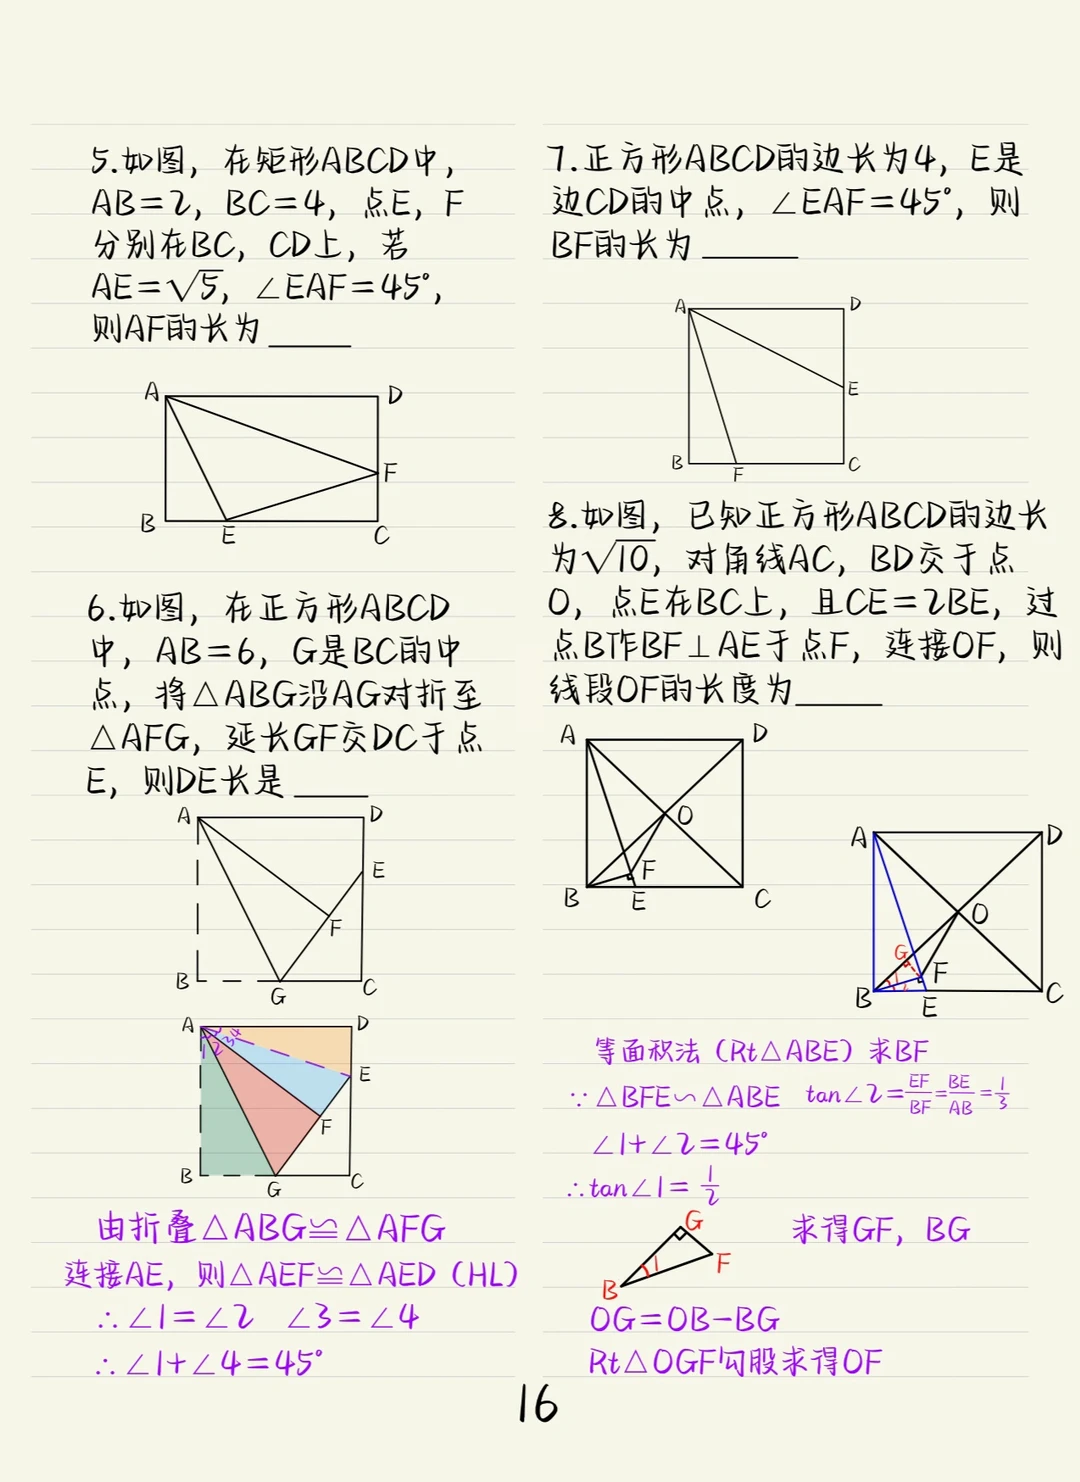 5.如图，在矩形ABCD中，
AB=2，BC=4，点E，F
分别在BC，CD上，若
AE=√5，∠EAF=45°，
则AF的长为____
A
D
F
B
E
C
6.如图，在正方形ABCD
中，AB=6，G是BC的中
点，将△ABG沿AG对折至
△AFG，延长GF交DC于点
E，则DE长是____
A
D
E
F
B
G
C
A
D
1 2 3 4
E
F
B
G
C
由折叠△ABG≌△AFG
连接AE，则△AEF≌△AED（HL）
∴∠1=∠2 ∠3=∠4
∴∠1+∠4=45°
7.正方形ABCD的边长为4，E是
边CD的中点，∠EAF=45°，则
BF的长为____
A
D
E
B
F
C
8.如图，已知正方形ABCD的边长
为√10，对角线AC，BD交于点
O，点E在BC上，且CE=2BE，过
点B作BF⊥AE于点F，连接OF，则
线段OF的长度为____
A
D
O
F
B
E
C
A
D
O
G
F
B
E
C
等面积法（Rt△ABE）求BF
∵△BFE∽△ABE tan∠2=EF/BF=BE/AB=1/3
∠1+∠2=45°
∴tan∠1=1/2
G
求得GF，BG
1
F
B
OG=OB-BG
Rt△OGF勾股求得OF
16